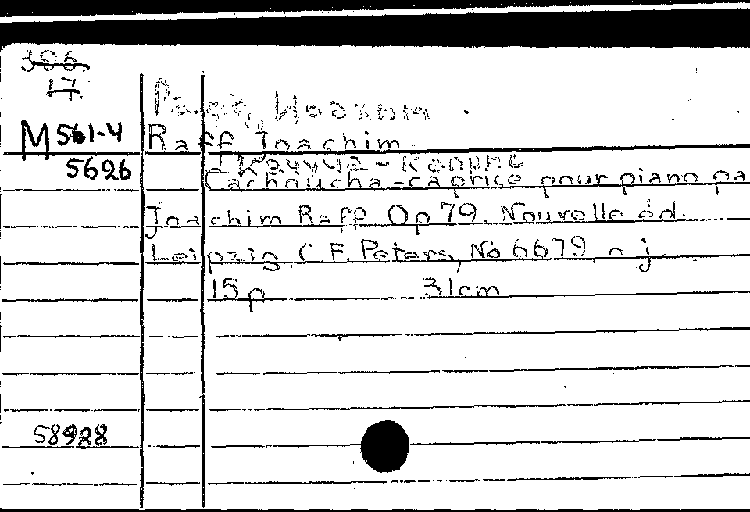 386
17
Рафф, Иоахим.
M 561-4
Raff, Joachim
5626
Качуча - каприс
Cachoucha-caprice pour piano pa
Joachim Raff. Op 79. Nouvelle éd.
Leipzig, C.F. Peters, No 6679, n j.
15 p 31cm
58928